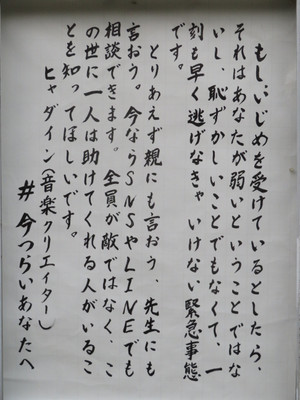 もしいじめを受けているとしたら、
それはあなたが弱いということではな
いし、恥ずかしいことでもなくて、一
刻も早く逃げなきゃいけない緊急事態
です。
とりあえず親にも言おう、先生にも
言おう。今ならSNSやLINEでも
相談できます。全員が敵ではなく、こ
の世に一人は助けてくれる人がいるこ
とを知ってほしいです。
ヒャダイン（音楽クリエイター）
#今つらいあなたへ